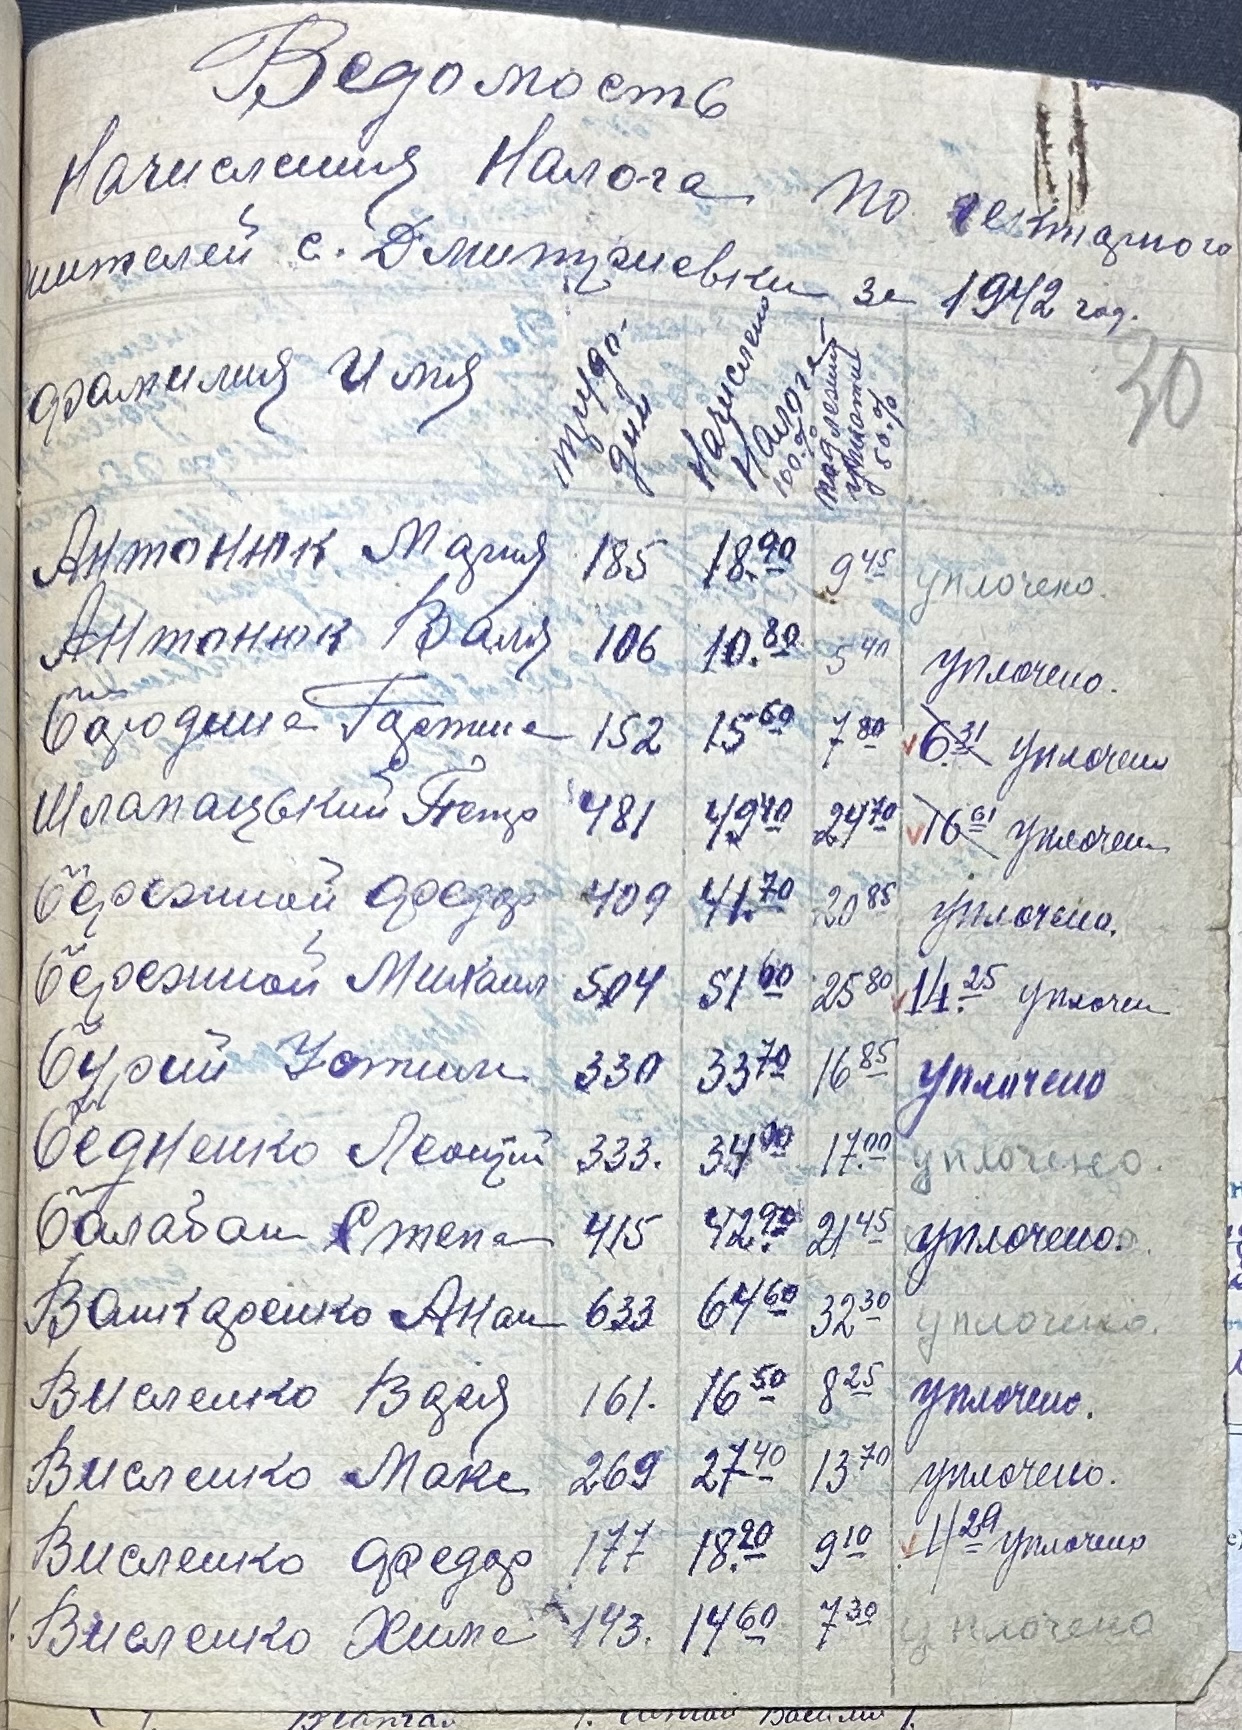 Ведомость
Начисления Налога по гектарного
жителей с. Дмитриевки за 1942 год.
30
фамилия Имя трудо-дни Начислено Налога 100% подлежит уплате 50%
Антонюк Мария 185 18.90 9 45 уплочено.
Антонюк Валя 106 10.80 5 40 уплочено.
Бародина 152 15 60 7 80 6.31 уплочено
Шлапацький Петр 481 49 40 24 70 16 61 уплочено
Бережной Федор 409 41.70 20 85 уплочено.
Бережной Михаил 504 51 60 25 80 14.25 уплочен
Бурий Устин 330 33 70 16 85 уплочено
Бедненко Леонтий 333. 34 00 17.00 уплочено.
Балабан Степан 415 42.90 21 45 уплочено.
Ванкаренко Анан 633 64 60 32 30 уплочено.
Висленко Варя 161. 16 50 8 25 уплочено.
Висленко Макс 269 27 40 13 70 уплочено.
Висленко Федор 177 18.20 9 10 4 29 уплочено
Висленко Хима 143. 14 60 7 30 уплочено